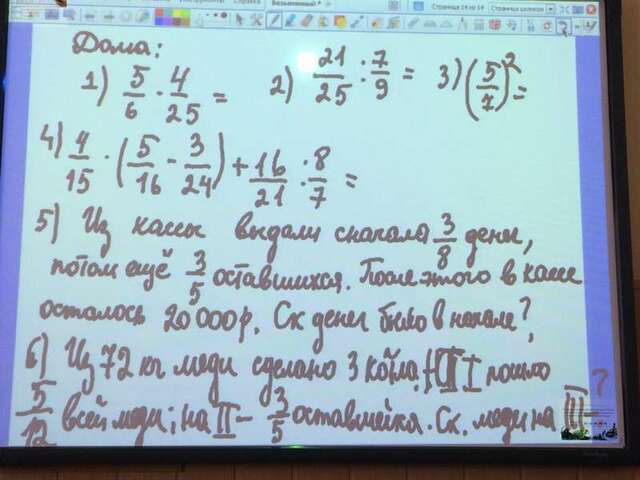 Справка
Безымянный *
Страница 14 из 14
Страница целиком
Дома:
1) 5/6 · 4/25 =
2) 21/25 : 7/9 =
3) (5/7)² =
4) 4/15 · (5/16 - 3/24) + 16/21 : 8/7 =
5) Из кассы выдали сначала 3/8 денег,
потом ещё 3/5 оставшихся. После этого в кассе
осталось 20 000р. Ск денег было в начале?
6) Из 72 кг меди сделано 3 котла. I пошло
5/12 всей меди; на II - 3/5 оставшейся. Ск. меди на III - ?